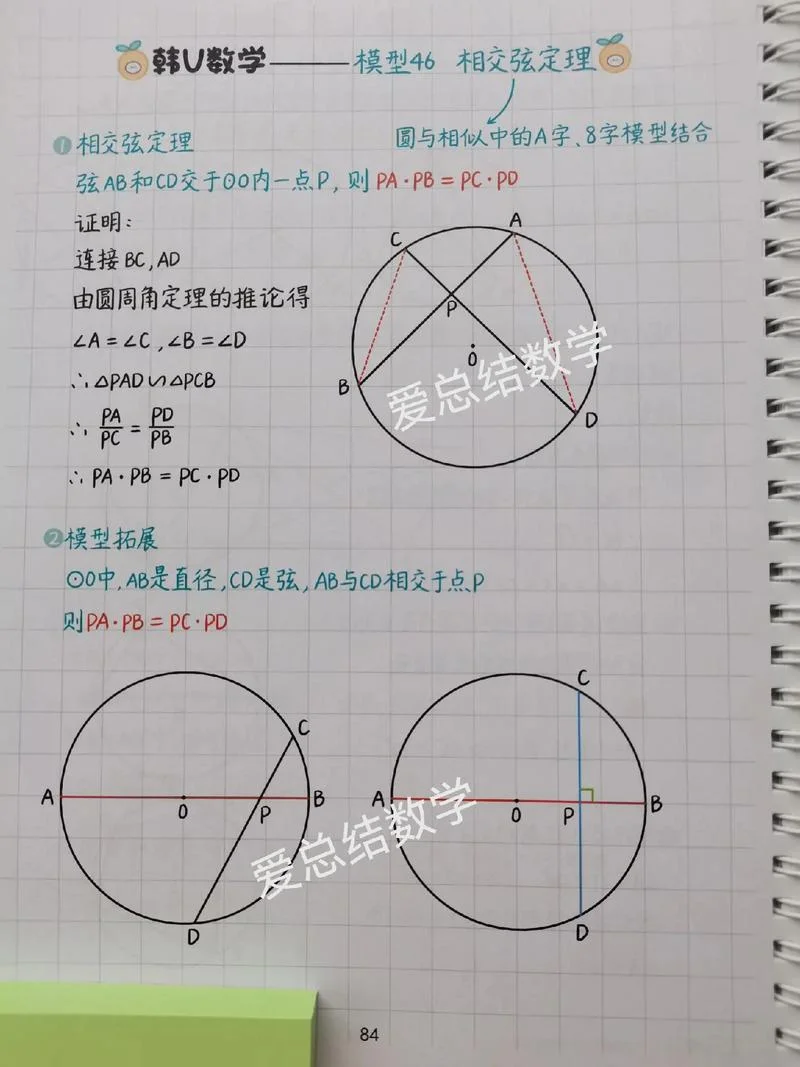 韩U数学——模型46 相交弦定理
圆与相似中的A字、8字模型结合
① 相交弦定理
弦AB和CD交于⊙O内一点P，则 PA·PB = PC·PD
证明：
连接 BC, AD
由圆周角定理的推论得
∠A = ∠C , ∠B = ∠D
∴ △PAD∽△PCB
∴ PA/PC = PD/PB
∴ PA·PB = PC·PD
C
A
P
O
B
D
爱总结数学
② 模型拓展
⊙O中, AB是直径, CD是弦, AB与CD相交于点P
则PA·PB = PC·PD
C
A
O
P
B
D
C
A
O
P
B
D
爱总结数学
84